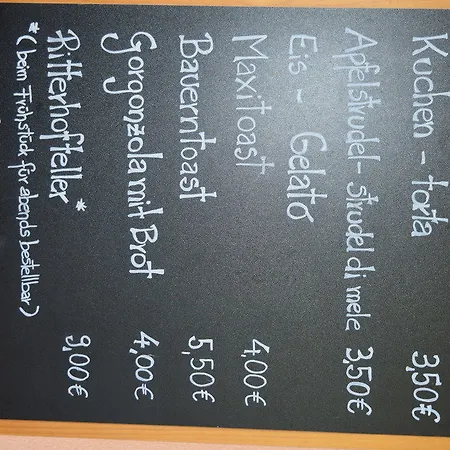 Kuchen - torta 3,50€
Apfelstrudel - strudel di mele 3,50€
Eis - Gelato
Maxitoast 4,00€
Bauerntoast 5,50€
Gorgonzola mit Brot 4,00€
Ritterhofteller* 9,00€
*(beim Frühstück für abends bestellbar)